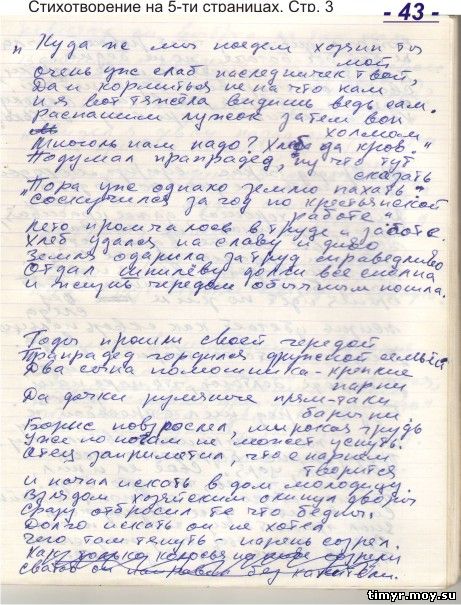 Стихотворение на 5-ти страницах. Стр. 3
- 43 -
„Куда же мы поедем хозяин ты
мой
очень уже слаб наследничек твой,
Да и кормиться не на что нам
и я вот тяжела видишь ведь сам.
Распашим лужок за тем вон
холмом
Много ль нам надо? Хлеб да кров."
Подумал прапрадед, ну что тут
сказать
„Пора уже однако землю пахать"
соскучился за год по крестьянской
работе",
лето промчалось в труде и заботе.
Хлеб удался на славу и диво
Земля одарила за труд справедливо
Отдал долги все сполна
и жизнь чередом обычным пошла.
Годы прошли своей чередой
Прапрадед гордился дружной семьёй
Два сына помошника - крепкие
парни
Да дочки румяные прям-таки
барыни.
Борис повзрослел, широкая грудь
Уже по ночам не может уснуть.
Отец заприметил, что с парнем
творится
и начал искать в дом молодицу.
Взглядом хозяйским окинул дворы
сразу отбросил те что бедны.
Долго искать он не хотел
чего там тянуть - парень созрел.
сватов он
timyr.moy.su